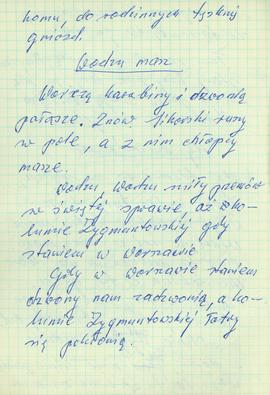 komu, do rodzinnych tęsknij
gniazd.
Wodzu nasz
Warczą karabiny i dzwonią
pałasze. Znów Sikorski rusza
w pole, a z nim chłopcy
nasze.
Wodzu, wodzu miły prowadź
w świętej sprawie, aż w ko-
lumnie Zygmuntowskiej gdy
staniem w Warszawie
Gdy w Warszawie staniem
dzwony nam zadzwonią, a ko-
lumnie Zygmuntowskiej Tatry
się pokłonią.